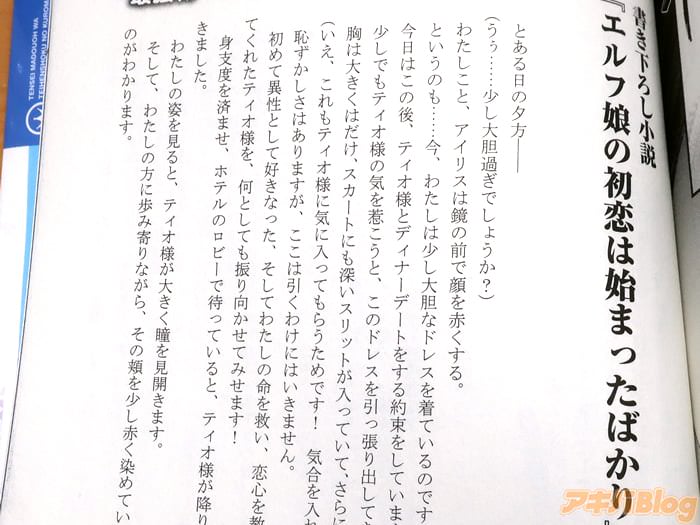 書き下ろし小説
『エルフ娘の初恋は始まったばかり』
とある日の夕方――
(うぅ……少し大胆過ぎでしょうか?)
わたしこと、アイリスは鏡の前で顔を赤くする。
というのも……今、わたしは少し大胆なドレスを着ているのです
今日はこの後、ティオ様とディナーデートをする約束をしていま
少しでもティオ様の気を惹こうと、このドレスを引っ張り出してき
胸は大きくはだけ、スカートにも深いスリットが入っていて、さらに
(いえ、これもティオ様に気に入ってもらうためです! 気合を入れ
恥ずかしさはありますが、ここは引くわけにはいきません。
初めて異性として好きなった、そしてわたしの命を救い、恋心を教
てくれたティオ様を、何としても振り向かせてみせます!
身支度を済ませ、ホテルのロビーで待っていると、ティオ様が降り
きました。
わたしの姿を見ると、ティオ様が大きく瞳を見開きます。
そして、わたしの方に歩み寄りながら、その頬を少し赤く染めてい
のがわかります。
TENSEI MADOUOH WA
TEIHENSHOKU NO KUROM
アキバBlog